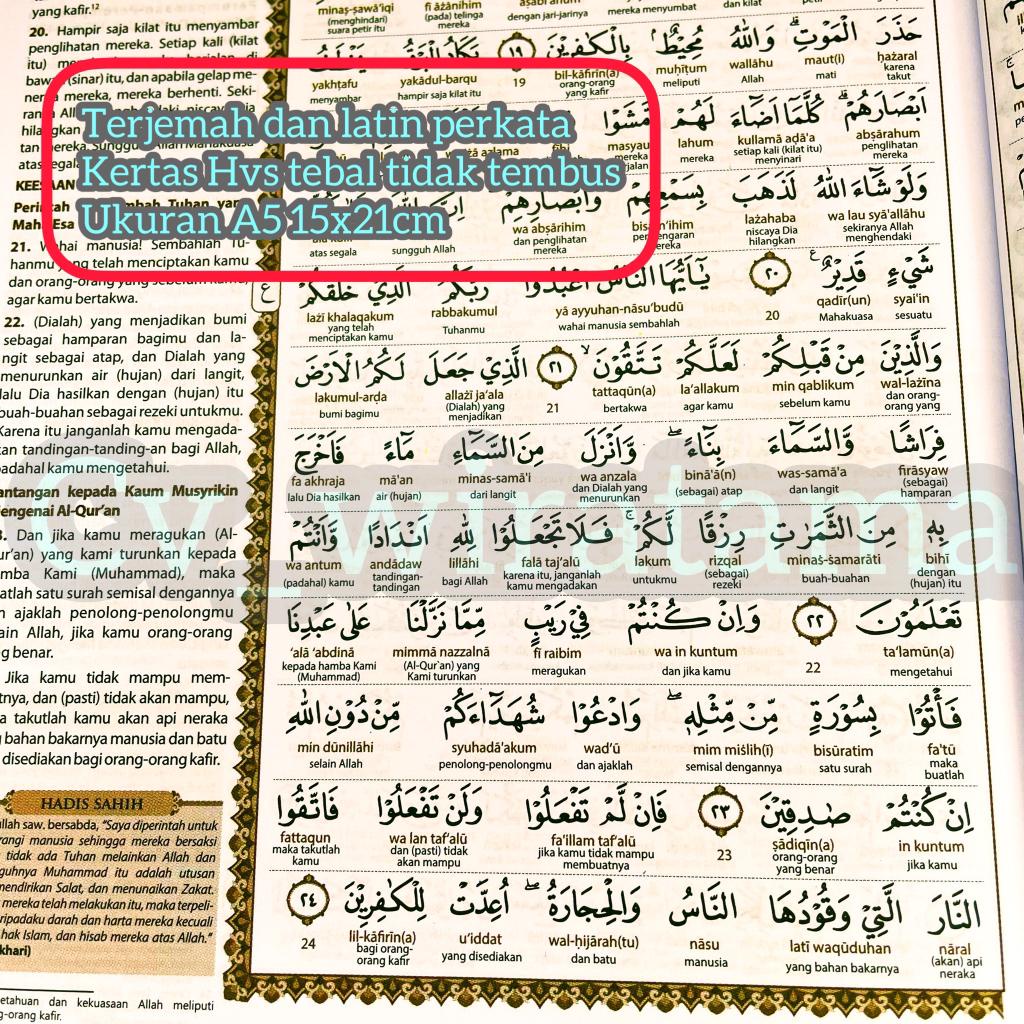 yang kafir.¹²
20. Hampir saja kilat itu menyambar
penglihatan mereka. Setiap kali (kilat
(sinar) itu, dan apabila gelap me-
mereka, mereka berhenti. Seki-
KEES
Maha Esa
21. Wahai manusia! Sembahlah Tu-
hanmu yang telah menciptakan kamu
dan orang-orang yang sebelum kamu,
agar kamu bertakwa.
22. (Dialah) yang menjadikan bumi
sebagai hamparan bagimu dan la-
ngit sebagai atap, dan Dialah yang
menurunkan air (hujan) dari langit,
lalu Dia hasilkan dengan (hujan) itu
buah-buahan sebagai rezeki untukmu.
Karena itu janganlah kamu mengada-
kan tandingan-tanding-an bagi Allah,
padahal kamu mengetahui.
antangan kepada Kaum Musyrikin
engenai Al-Qur'an
3. Dan jika kamu meragukan (Al-
ur'an) yang kami turunkan kepada
mba Kami (Muhammad), maka
atlah satu surah semisal dengannya
n ajaklah penolong-penolongmu
ain Allah, jika kamu orang-orang
g benar.
Jika kamu tidak mampu mem-
tnya, dan (pasti) tidak akan mampu,
a takutlah kamu akan api neraka
g bahan bakarnya manusia dan batu
disediakan bagi orang-orang kafir.
HADIS SAHIH
ullah saw. bersabda, "Saya diperintah untuk
rangi manusia sehingga mereka bersaksi
tidak ada Tuhan melainkan Allah dan
guhnya Muhammad itu adalah utusan
mendirikan Salat, dan menunaikan Zakat.
mereka telah melakukan itu, maka terpeli-
ripadaku darah dan harta mereka kecuali
hak Islam, dan hisab mereka atas Allah."
khari)
etahuan dan kekuasaan Allah meliputi
g-orang kafir.
Terjemah dan latin perkata
Kertas Hvs tebal tidak tembus
Ukuran A5 15x21cm
minaṣ-ṣawā'iqi fī āżānihim
(menghindari) (pada) telinga dengan jari-jarinya mereka menyumbat dan kilat
suara petir itu mereka
حَذَرَ الْمَوْتِۗ وَاللّٰهُ مُحِيْطٌۢ بِالْكٰفِرِيْنَ ١٩ يَكَادُ الْبَرْقُ يَخْطَفُ
ḥażaral maut(i) wallāhu muḥīṭum bil-kāfirīn(a) 19 yakādul-barqu yakhṭafu
karena takut mati Allah meliputi orang-orang yang kafir hampir saja kilat itu menyambar
اَبْصَارَهُمْۗ كُلَّمَآ اَضَاۤءَ لَهُمْ مَّشَوْا
abṣārahum kullamā aḍā'a lahum masyau
penglihatan mereka setiap kali (kilat itu) menyinari mereka mereka berjalan
وَلَوْ شَاۤءَ اللّٰهُ لَذَهَبَ بِسَمْعِهِمْ وَاَبْصَارِهِمْ
wa lau syā'allāhu lażahaba bisam'ihim wa abṣārihim
sekiranya Allah menghendaki niscaya Dia hilangkan pendengaran mereka dan penglihatan mereka sungguh Allah atas segala
شَيْءٍ قَدِيْرٌ ࣖ ٢٠ يٰٓاَيُّهَا النَّاسُ اعْبُدُوْا رَبَّكُمُ الَّذِيْ خَلَقَكُمْ
syai'in qadīr(un) 20 yā ayyuhan-nāsu'budū rabbakumul lażī khalaqakum
sesuatu Mahakuasa wahai manusia sembahlah Tuhanmu yang telah menciptakan kamu
وَالَّذِيْنَ مِنْ قَبْلِكُمْ لَعَلَّكُمْ تَتَّقُوْنَۙ ٢١ الَّذِيْ جَعَلَ لَكُمُ الْاَرْضَ
wal-lażīna min qablikum la'allakum tattaqūn(a) 21 allażī ja'ala lakumul-arḍa
dan orang-orang yang sebelum kamu agar kamu bertakwa (Dialah) yang menjadikan bumi bagimu
فِرَاشًا وَّالسَّمَاۤءَ بِنَاۤءًۖ وَّاَنْزَلَ مِنَ السَّمَاۤءِ مَاۤءً فَاَخْرَجَ
firāsyaw was-samā'a binā'a(n) wa anzala minas-samā'i mā'an fa akhraja
(sebagai) hamparan dan langit (sebagai) atap dan Dialah yang menurunkan dari langit air (hujan) lalu Dia hasilkan
بِهٖ مِنَ الثَّمَرٰتِ رِزْقًا لَّكُمْۚ فَلَا تَجْعَلُوْا لِلّٰهِ اَنْدَادًا وَّاَنْتُمْ
bihī minaṡ-ṡamarāti rizqal lakum falā taj'alū lillāhi andādaw wa antum
dengan (hujan) itu buah-buahan (sebagai) rezeki untukmu karena itu, janganlah kamu mengadakan bagi Allah tandingan-tandingan (padahal) kamu
تَعْلَمُوْنَ ٢٢ وَاِنْ كُنْتُمْ فِيْ رَيْبٍ مِّمَّا نَزَّلْنَا عَلٰى عَبْدِنَا
ta'lamūn(a) 22 wa in kuntum fī raibim mimmā nazzalnā 'alā 'abdinā
mengetahui dan jika kamu meragukan (Al-Qur'an) yang Kami turunkan kepada hamba Kami (Muhammad)
فَأْتُوْا بِسُوْرَةٍ مِّنْ مِّثْلِهٖۖ وَادْعُوْا شُهَدَاۤءَكُمْ مِّنْ دُوْنِ اللّٰهِ
fa'tū bisūratim mim miṡlih(ī) wad'ū syuhadā'akum min dūnillāhi
maka buatlah satu surah semisal dengannya dan ajaklah penolong-penolongmu selain Allah
اِنْ كُنْتُمْ صٰدِقِيْنَ ٢٣ فَاِنْ لَّمْ تَفْعَلُوْا وَلَنْ تَفْعَلُوْا فَاتَّقُوا
in kuntum ṣādiqīn(a) 23 fa'illam taf'alū wa lan taf'alū fattaqun
jika kamu orang-orang yang benar jika kamu tidak mampu membuatnya dan (pasti) tidak akan mampu maka takutlah kamu
النَّارَ الَّتِيْ وَقُوْدُهَا النَّاسُ وَالْحِجَارَةُۖ اُعِدَّتْ لِلْكٰفِرِيْنَ ٢٤
nāral latī waqūduhan nāsu wal-ḥijārah(tu) u'iddat lil-kāfirīn(a) 24
(akan) api neraka yang bahan bakarnya manusia dan batu yang disediakan bagi orang-orang kafir
wiratama